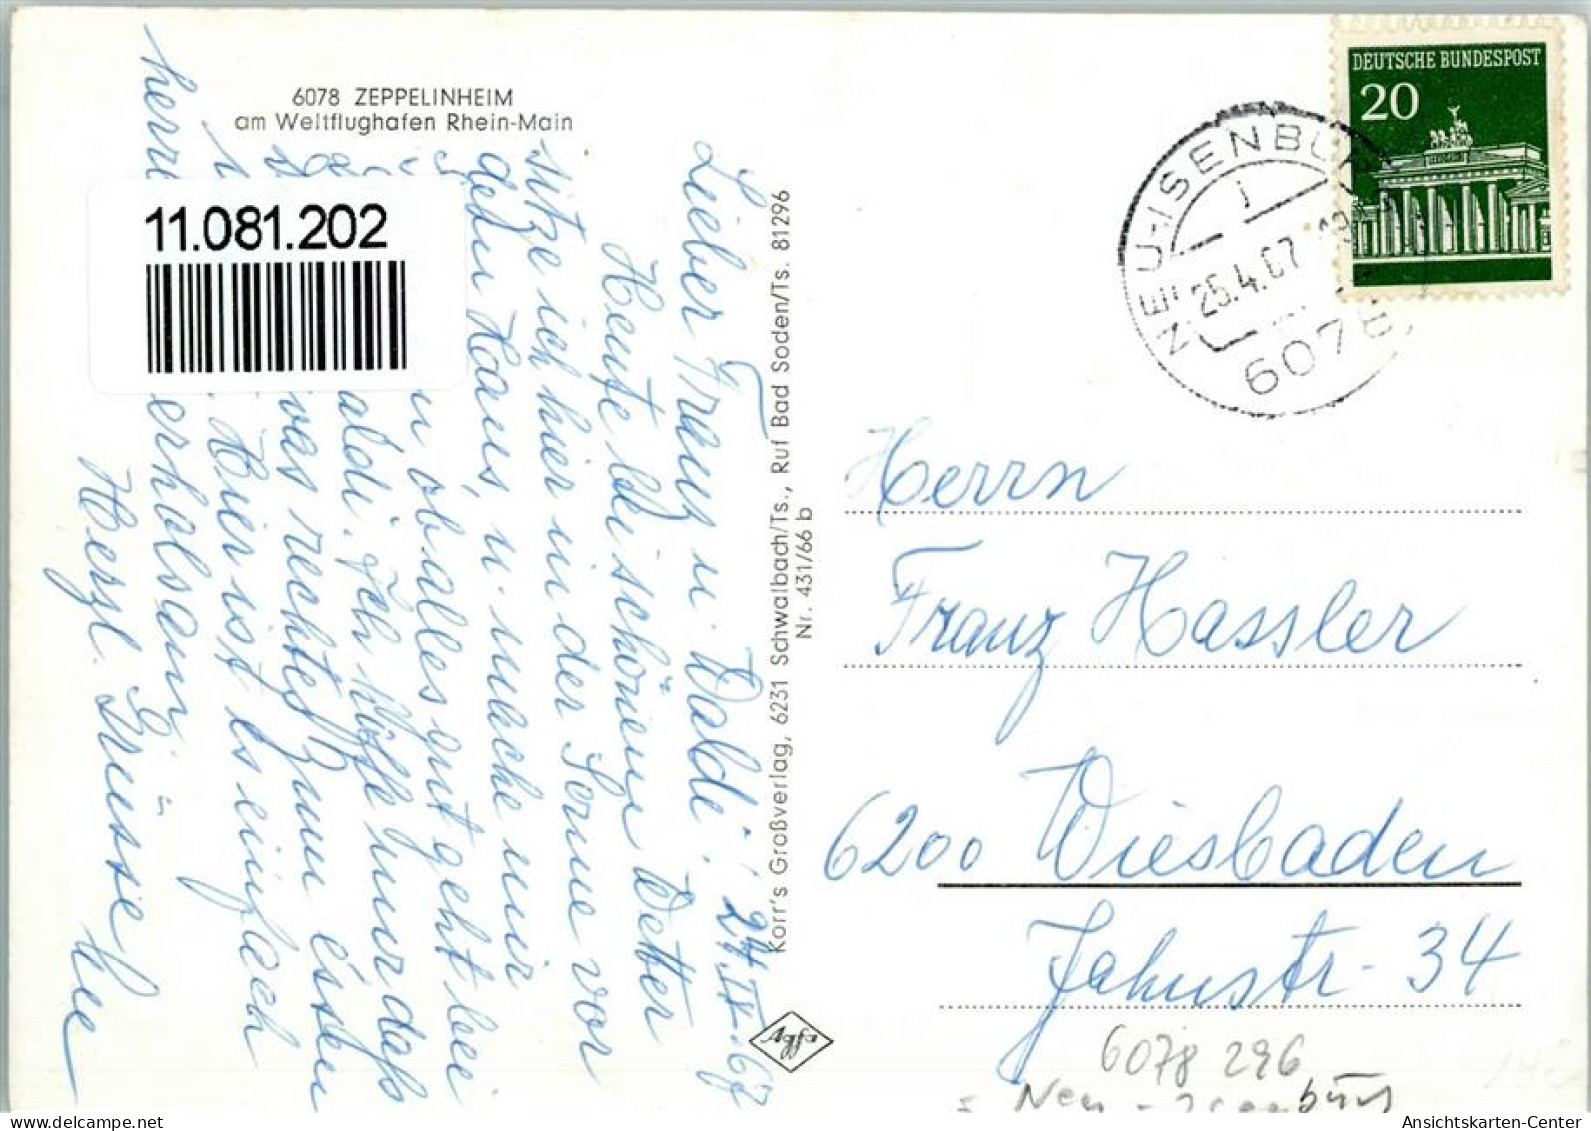 6078 ZEPPELINHEIM
am Weltflughafen Rhein-Main
11.081.202
Lieber Franz u. Waldi! 24.IV.67
Heute bei schönem Wetter
sitze ich hier in der Sonne vor
dem Haus, u. mache mir
ob alles gut geht bei
aldi. Ich hoffe immer, daß
was rechtes zum essen
Hier ist es einfach
herr
erholsam
Herzl. Grüsse
Korr's Großverlag, 6231 Schwalbach/Ts., Ruf Bad Soden/Ts. 81296
Nr. 431/66 b
Agfa
DEUTSCHE BUNDESPOST
20
NEU-ISENBU
j
25.4.67
6078
Herrn
Franz Hassler
6200 Wiesbaden
Jahnstr. 34
6078 296
Neu-Isenburg
Ansichtskarten-Center
delcampe.net